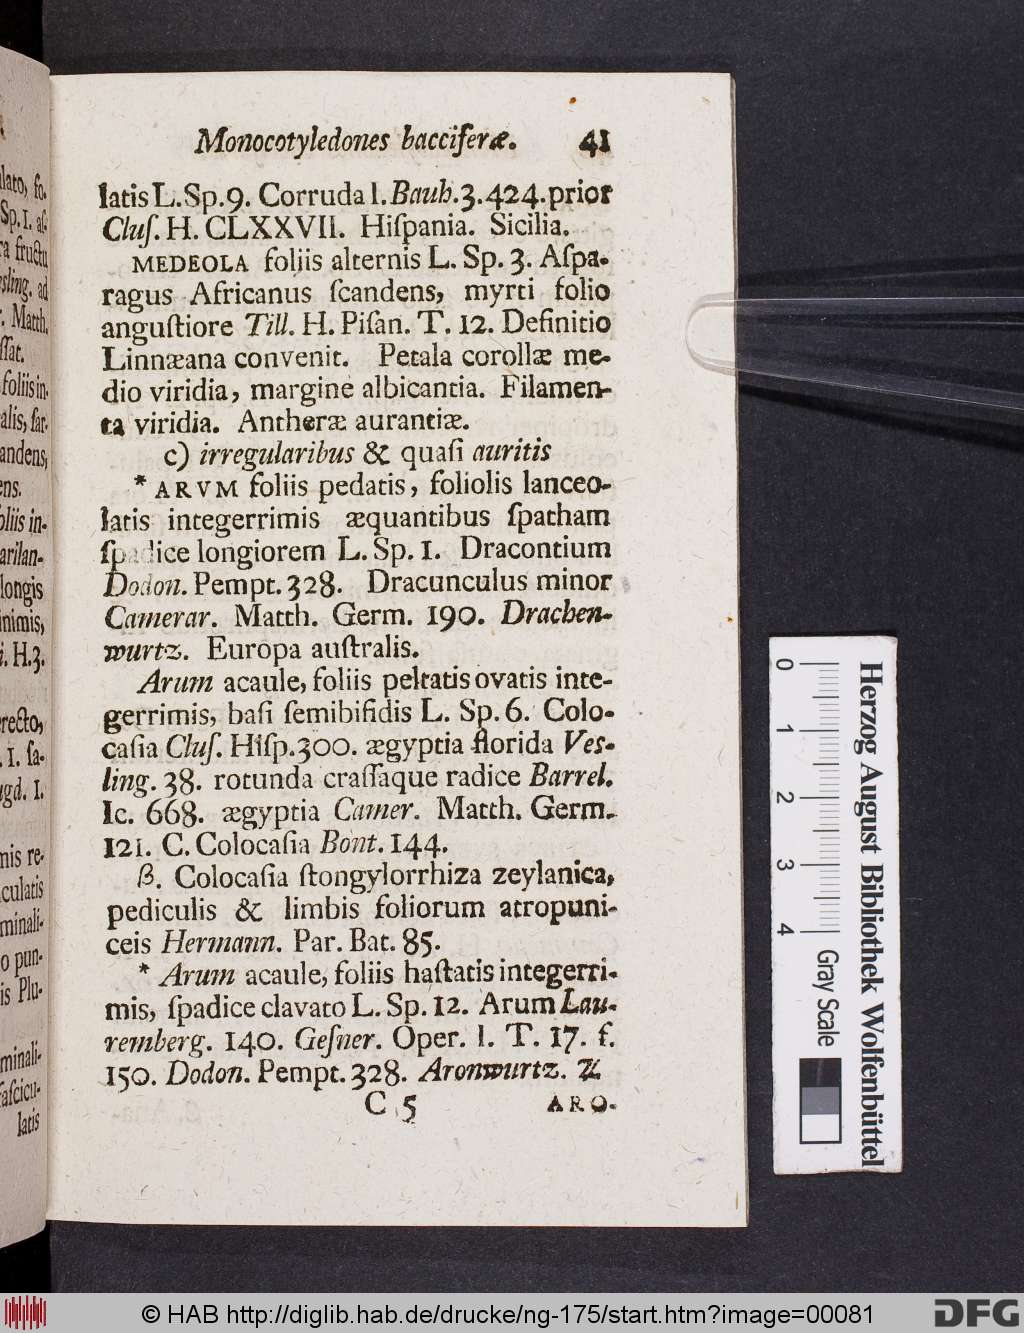 Monocotyledones bacciferæ. 41
latis L. Sp. 9. Corruda l. Bauh. 3. 424. prior
Cluſ. H. CLXXVII. Hiſpania. Sicilia.
MEDEOLA foliis alternis L. Sp. 3. Aſpa-
ragus Africanus ſcandens, myrti folio
anguſtiore Till. H. Piſan. T. 12. Definitio
Linnæana convenit. Petala corollæ me-
dio viridia, margine albicantia. Filamen-
ta viridia. Antheræ aurantiæ.
c) irregularibus & quaſi auritis
* ARVM foliis pedatis, foliolis lanceo-
latis integerrimis æquantibus ſpatham
ſpadice longiorem L. Sp. 1. Dracontium
Dodon. Pempt. 328. Dracunculus minor
Camerar. Matth. Germ. 190. Drachen-
wurtz. Europa auſtralis.
Arum acaule, foliis peltatis ovatis inte-
gerrimis, baſi ſemibifidis L. Sp. 6. Colo-
caſia Cluſ. Hiſp. 300. ægyptia florida Ves-
ling. 38. rotunda craſſaque radice Barrel.
Ic. 668. ægyptia Camer. Matth. Germ.
121. C. Colocaſia Bont. 144.
β. Colocaſia ſtongylorrhiza zeylanica,
pediculis & limbis foliorum atropuni-
ceis Hermann. Par. Bat. 85.
* Arum acaule, foliis haſtatis integerri-
mis, ſpadice clavato L. Sp. 12. Arum Lau-
remberg. 140. Geſner. Oper. l. T. 17. f.
150. Dodon. Pempt. 328. Aronwurtz. ♃
C 5 ARO-
lato, fo-
Sp. 1. aſ-
ra fructu
sling. ad
. Matth.
ſſat.
foliis in-
alis, ſar-
andens,
ens.
oliis in-
arilan-
longis
inimis,
i. H. 3.
recto,
. 1. ſa-
ugd. 1.
nis re-
culatis
minali-
o pun-
is Plu-
minali-
faſcicu-
latis
Herzog August Bibliothek Wolfenbüttel
0 1 2 3 4 Gray Scale
© HAB http://diglib.hab.de/drucke/ng-175/start.htm?image=00081
DFG